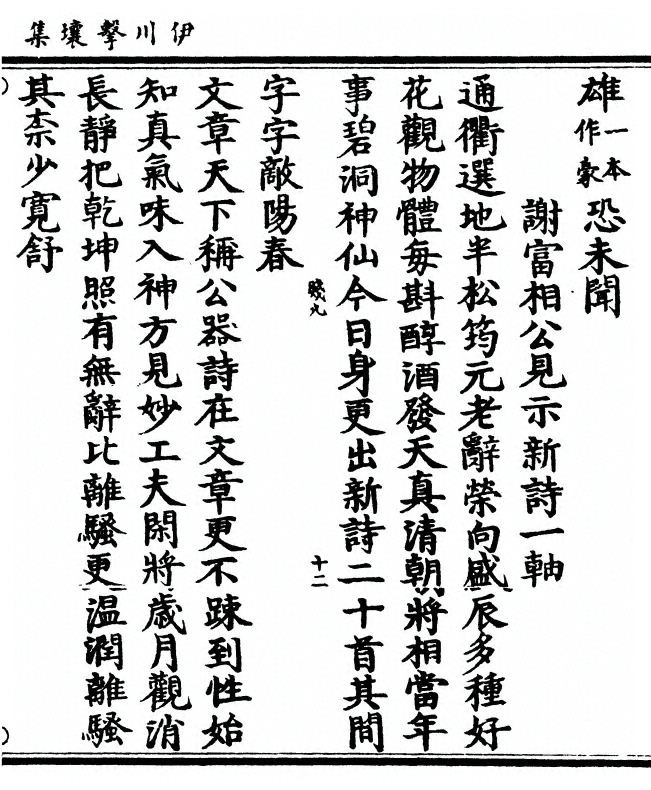 伊川擊壤集
雄一本作豪恐未聞
謝富相公見示新詩一軸
通衢選地半松筠元老辭榮向盛辰多種好
花觀物體每斟醇酒發天真清朝將相當年
事碧洞神仙今日身更出新詩二十首其間
九
十二
字字敵陽春
文章天下稱公器詩在文章更不踈到性始
知真氣味入神方見妙工夫閑將歲月觀消
長靜把乾坤照有無辭比離騷更温潤離騷
其柰少寬舒